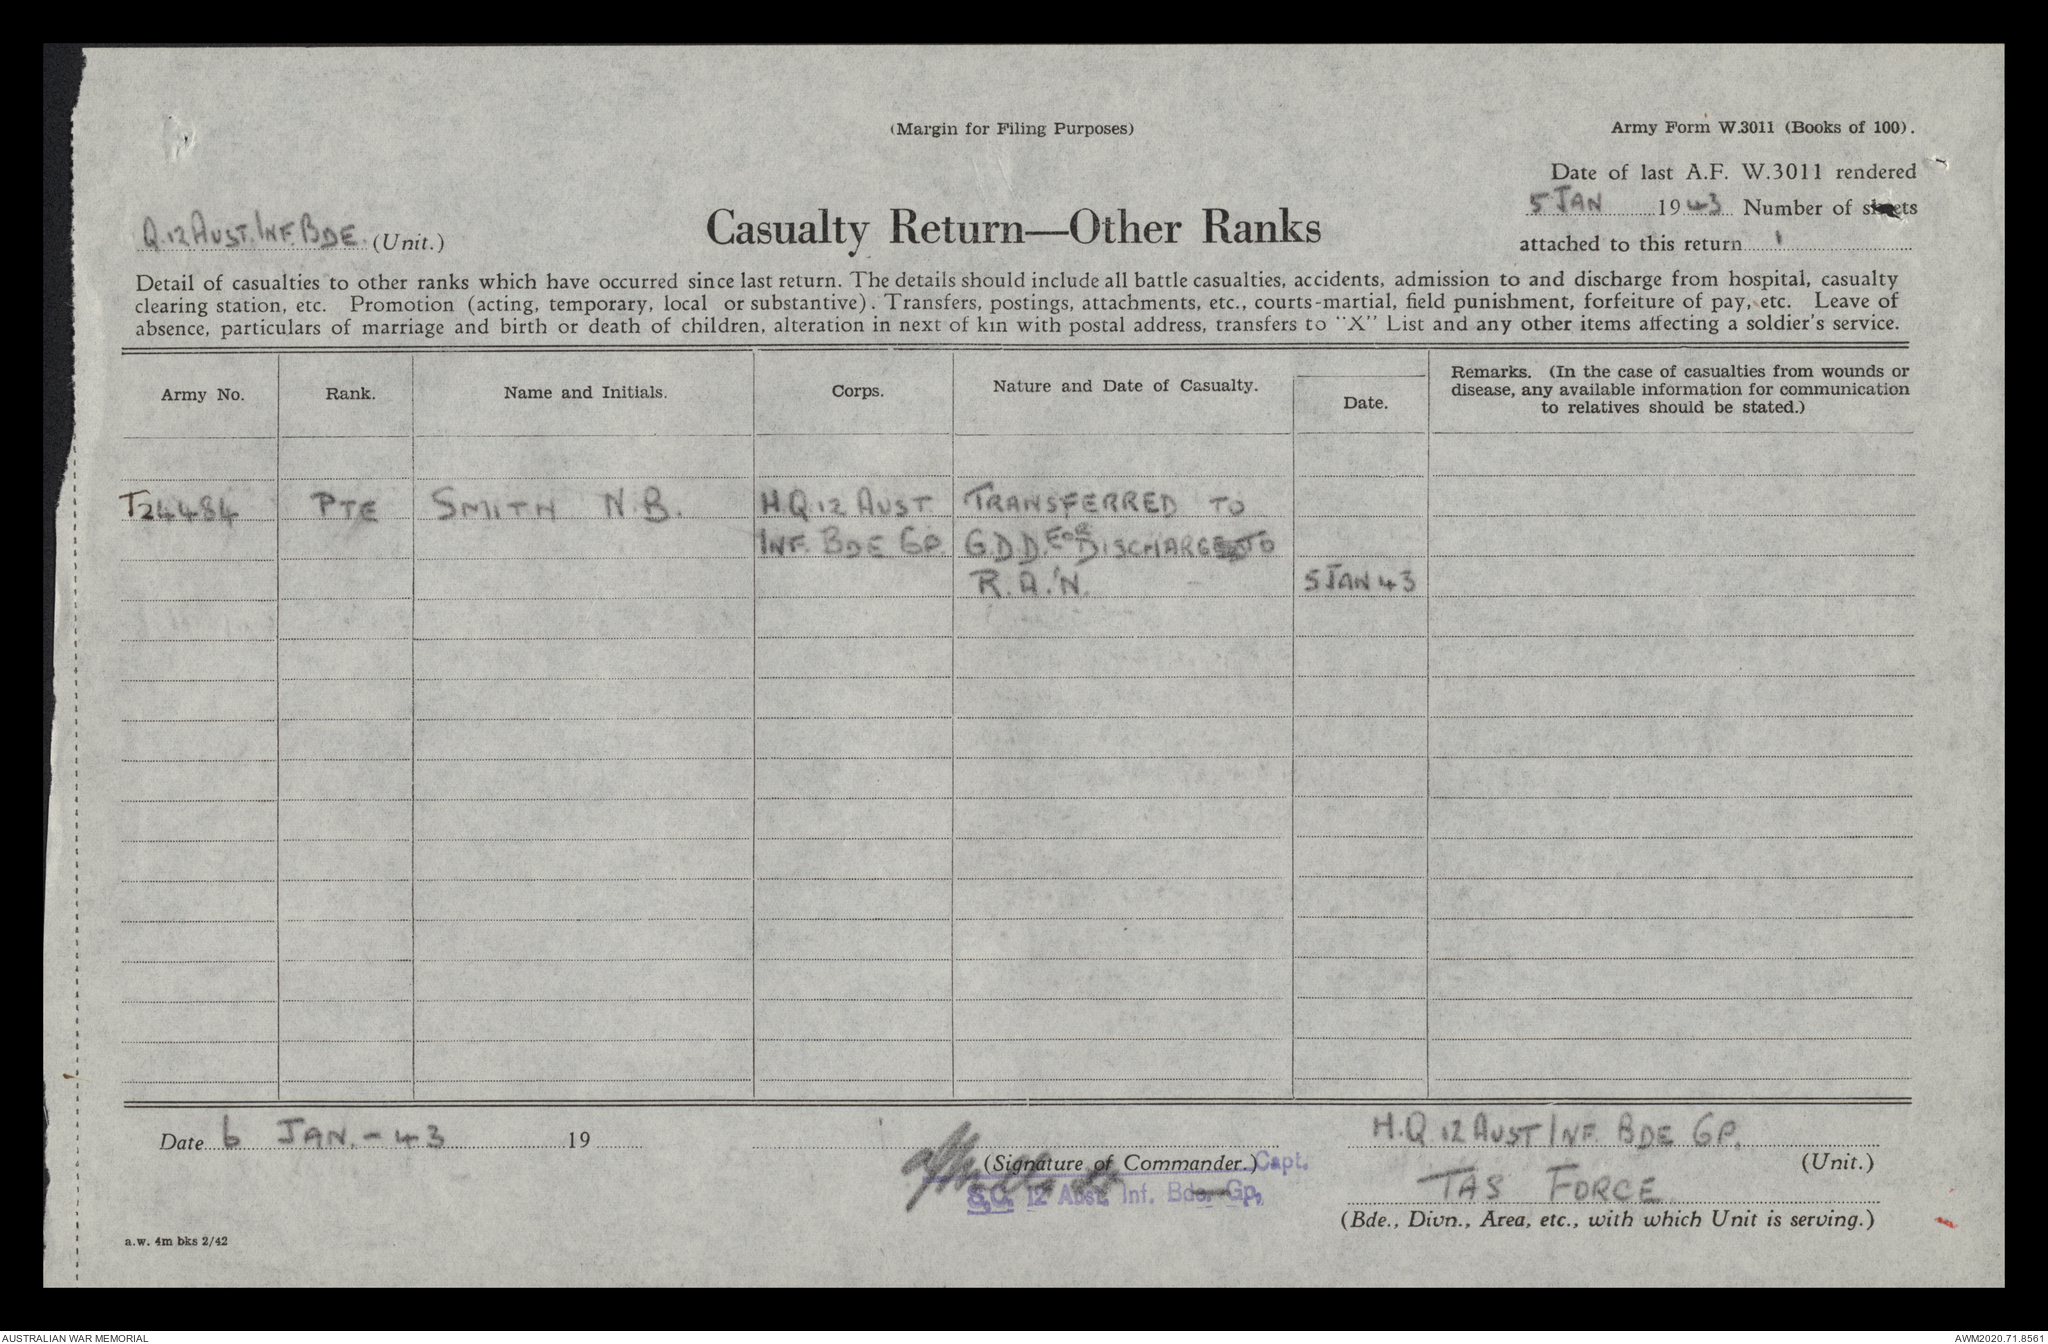 (Margin for Filing Purposes)
Army Form W.3011 (Books of 100).
Date of last A.F. W.3011 rendered
5 JAN 1943 Number of sheets
attached to this return 1
Q.12 AUST. INF. BDE. (Unit.)
Casualty Return—Other Ranks
Detail of casualties to other ranks which have occurred since last return. The details should include all battle casualties, accidents, admission to and discharge from hospital, casualty
clearing station, etc. Promotion (acting, temporary, local or substantive). Transfers, postings, attachments, etc., courts-martial, field punishment, forfeiture of pay, etc. Leave of
absence, particulars of marriage and birth or death of children, alteration in next of kin with postal address, transfers to "X" List and any other items affecting a soldier's service.
Army No. Rank. Name and Initials. Corps. Nature and Date of Casualty. Date. Remarks. (In the case of casualties from wounds or
disease, any available information for communication
to relatives should be stated.)
T24484 PTE SMITH N.B. H.Q 12 AUST. TRANSFERRED TO
INF. BDE GP. G.D.D. FOR DISCHARGE TO
R.A.N. 5 JAN 43
Date 6 JAN. - 43 19
H.Q 12 AUST INF. BDE GP.
(Signature of Commander.) Capt. (Unit.)
S.C. 12 Aust. Inf. Bde. Gp. TAS FORCE
(Bde., Divn., Area, etc., with which Unit is serving.)
a.w. 4m bks 2/42
AUSTRALIAN WAR MEMORIAL AWM2020.71.8561